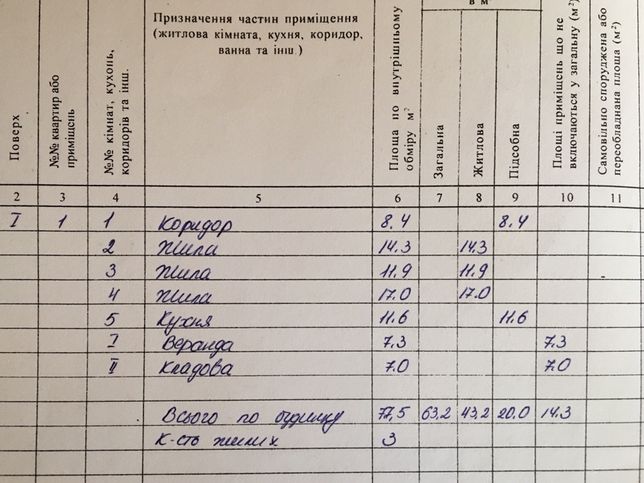 Поверх
№№ квартир або приміщень
№№ кімнат, кухонь, коридорів та інш.
Призначення частин приміщення
(житлова кімната, кухня, коридор,
ванна та інш.)
Площа по внутрішньому обміру м²
в м²
Загальна
Житлова
Підсобна
Площі приміщень що не включаються у загальну (м²)
Самовільно споруджена або переобладнана площа (м²)
2 3 4 5 6 7 8 9 10 11
I 1 1 Коридор 8.4 8.4
2 Жила 14.3 14.3
3 Жила 11.9 11.9
4 Жила 17.0 17.0
5 Кухня 11.6 11.6
I Веранда 7.3 7.3
II Кладова 7.0 7.0
Всього по будинку 77,5 63,2 43,2 20.0 14.3
К-сть жилих 3